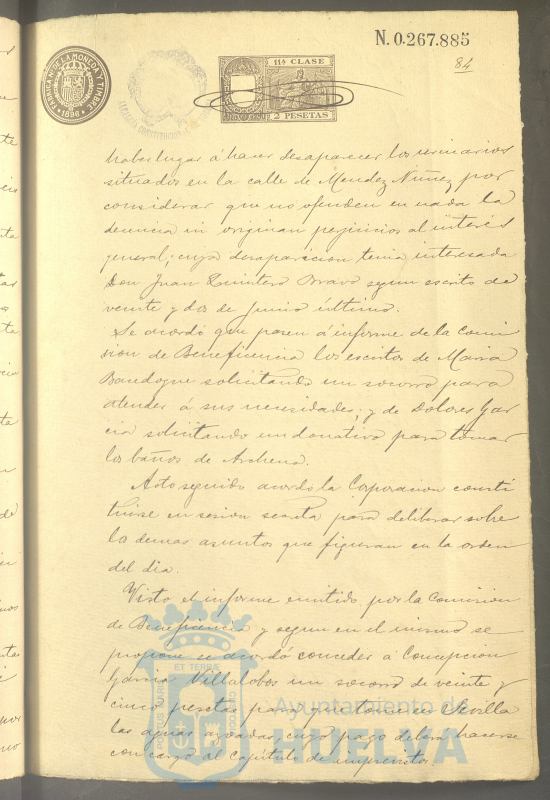 N. 0.267.885
84
FABRICA N. DE LA MONEDA Y TIMBRE
1896
11ª CLASE
2 PESETAS
haber lugar á hacer desaparecer los urinarios
situados en la calle de Mendez Nuñez por
considerar que no ofenden en nada la
decencia ni originan perjuicios al interés
general; cuya desaparicion tenia interesada
Don Juan Quintero Bravo segun escrito de
veinte y dos de Junio último.
Se acordó que pasen á informe de la Comi
sion de Beneficencia los escritos de Maria
solicitando un socorro para
atender á sus necesidades; y de Dolores Gar
cia solicitando un donativo para tomar
los baños de Archena.
Acto seguido acordó la Corporacion consti
tuirse en sesion secreta para deliberar sobre
los demas asuntos que figuran en la orden
del dia.
Visto el informe emitido por la Comision
de Beneficencia y segun en el mismo se
propone se acordó conceder á Concepcion
Garcia Villalobos un socorro de veinte y
cinco pesetas para que tome en Sevilla
las aguas azoadas cuyo pago deberá hacerse
con cargo al capítulo de imprevistos.
PORTUS MARIS ET TERRAE CUSTODIA
Ayuntamiento de
HUELVA